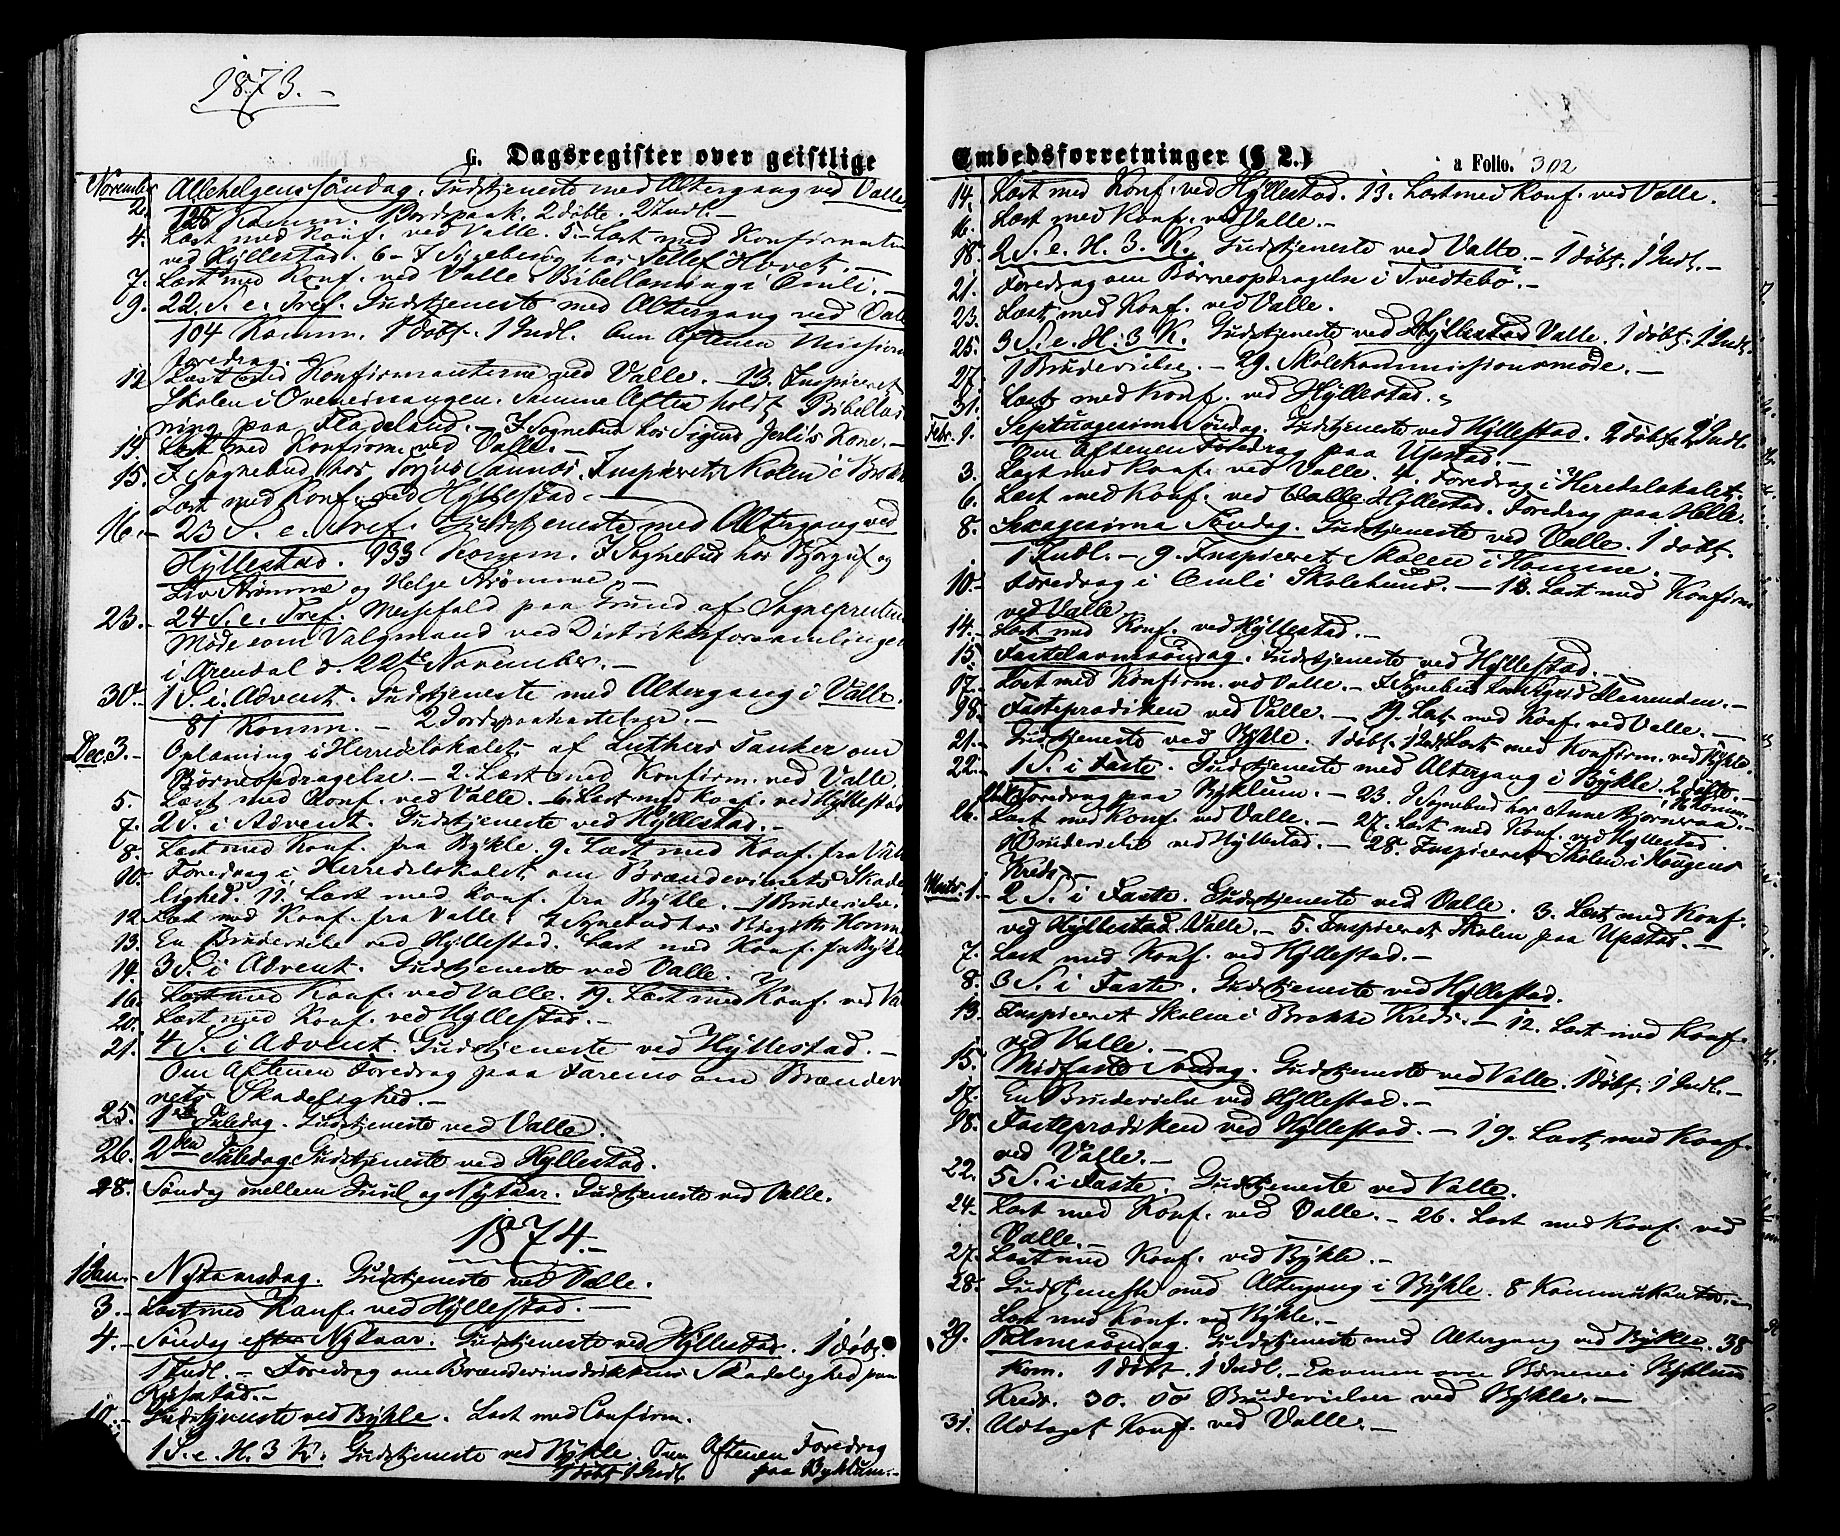 1873.-
G. Dagsregister over geistlige
November Allehelgens Söndag. Gudstjeneste med Altergang ved Valle
2. 128 Komm. Bordspaak. 2 døbte. 2 Indl.-
4. Læst med Konf. ved Valle. 5- Læst med Konfirmanterne
ved Hyllestad. 6- I Sygebesög hos Tellef Hovet.-
7. Læst med Konf. ved Valle. Bibellæsning i Omli.-
9. 22. S. e. Tref. Gudstjeneste med Altergang ved Valle
104 Komm. 1 døbt. 1 Indl. Om Aftenen Missions
foredrag.-
12. Læst med Konfirmanterne ved Valle. - 13. Inspiceret
Skolen i Samme Aften holdt Bibellæs
ning paa Fladeland. - I Sognebud hos Kone.-
14. Læst med Konfirm. ved Valle.-
15. I Sognebud hos Inspiceret Skolen i
Læst med Konf. ved Hyllestad.-
16.- 23 S. e. Tref. Gudstjeneste med Altergang ved
Hyllestad. 133 Komm. I Sognebud hos og
Liv Strømme og Helge Strømme.-
23.- 24 S. e. Tref. Messefald paa Grund af Sognepræsten
Møde som Valgmand ved Distriktsforsamlingen
i Arendal d. 22de November.-
30.- 1 S. i Advent. Gudstjeneste med Altergang i Valle.
81 Komm.- 2 Jordspaakastelser.-
Dec. 3.- Oplæsning i Herredslokalet af Luthers Tanker om
Børneopdragelse.- 2. Læst med Konfirm. ved Valle.
5. Læst med Konf. ved Valle.- 6. Læst med Konf. ved Hyllestad
7. 2 S. i Advent. Gudstjeneste ved Hyllestad.-
8. Læst med Konf. fra Bykle. 9. Læst med Konf. fra Valle
10. Foredrag i Herredslokalet om Brændevinets Skade
lighed. 11. Læst med Konf. fra Bykle.- 1 Brudevielse.
12. Læst med Konf. fra Valle. I Sognebud hos Birgith Homme
13. En Brudevielse ved Hyllestad. Læst med Konf. fra Bykle
14. 3 S. i Advent. Gudstjeneste ved Valle.
16. Læst med Konf. ved Valle. 19. Læst med Konf. ved Va
20. Læst med Konf. ved Hyllestad.-
21. 4 S. i Advent. Gudstjeneste ved Hyllestad.-
Om Aftenen Foredrag paa om Brændevi
nets Skadelighed.-
25. 1ste Juledag. Gudstjeneste ved Valle.
26. 2den Juledag Gudstjeneste ved Hyllestad.
28. Söndag mellem Juul og Nytaar. Gudstjeneste ved Valle.
1874.-
1 Jan.- Nytaarsdag. Gudstjeneste ved Valle.
3.- Læst med Konf. ved Hyllestad.-
4.- Söndag efter Nytaar. Gudstjeneste ved Hyllestad. 1 døbt
1 Indl.- Foredrag om Brændevinsdrikkens Skadelighed paa
Rysstad.-
10. Gudstjeneste ved Bykle. Læst med Confirm.
1 S. e. H. 3 K. Gudstjeneste ved Bykle. Om Aftenen Foredrag
1 døbt 1 Indl. paa Byklum.-
Embedsforretninger (§ 2.)
a Folio. 302
14. Læst med Konf. ved Hyllestad. 13. Læst med Konf. ved Valle.
16. Læst med Konf. ved Valle.-
18. 2 S. e. H. 3. K. Gudstjeneste ved Valle.- 1 døbt. 1 Indl.-
21. Foredrag om Børneopdragelse i Tvedtebø.-
23. Læst med Konf. ved Valle.
25. 3 S. e. H. 3 K. Gudstjeneste ved Hyllestad Valle. 1 døbt. 1 Indl.
27. 1 Brudevielse.- 29. Skolekommissionsmøde.-
31. Læst med Konf. ved Hyllestad.-
Febr. 1. Septuagesima Söndag. Gudstjeneste ved Hyllestad. 2 døbte 2 Indl.
Om Aftenen Foredrag paa Upstad.-
3. Læst med Konf. ved Valle. 4. Foredrag i Heredslokalet.
6. Læst med Konf. ved Valle Hyllestad. Foredrag paa Helle.
8. Sexagesima Söndag. Gudstjeneste ved Valle. 1 døbt.
1 Indl.- 9. Inspiceret Skolen i Homme.-
10. Foredrag i Omli Skolehuus.- 13. Læst med Konfirm
ved Valle.
14.- Læst med Konf. ved Hyllestad.-
15. Fastelavnssöndag. Gudstjeneste ved Hyllestad.-
17. Læst med Konfirm. ved Valle.- I Sognebud hos
18. Fasteprædiken ved Valle.- 19. Læst med Konf. ved Valle.-
21. Gudstjeneste ved Bykle. 1 døbt. 1 Indl. Læst med Konfirm. ved Bykle.
22. 1 S. i Faste. Gudstjeneste med Altergang i Bykle. 2 døbte.-
Foredrag paa Byklum.- 23. I Sognebud hos Anne Bjørnraa.-
26. Læst med Konf. ved Valle.- 27. Læst med Konf. ved Hyllestad.
1 Brudevielse ved Hyllestad.- 28. Inspiceret Skolen i Haugens
Kreds.-
Marts. 1.- 2 S. i Faste. Gudstjeneste ved Valle. 3. Læst med Konf.
ved Hyllestad Valle.- 5. Inspiceret Skolen paa Upstad.-
7. Læst med Konf. ved Hyllestad.-
8. 3 S. i Faste. Gudstjeneste ved Hyllestad.
13. Inspiceret Skolen i Brokke Kreds.- 12. Læst med Konf.
ved Valle.-
15. Midfaste Söndag. Gudstjeneste ved Valle. 1 døbt. 1 Indl.-
17. En Brudevielse ved Hyllestad.-
18. Fasteprædiken ved Hyllestad.- 19. Læst med Konf.
ved Valle.-
22. 5 S. i Faste. Gudstjeneste ved Valle.
24. Læst med Konf. ved Valle.- 26. Læst med Konf. ved
Valle.-
27. Læst med Konf. ved Bykle.-
28. Gudstjeneste med Altergang i Bykle. 8 Kommunikanter.-
Læst med Konf. ved Bykle.-
29. Palmesöndag. Gudstjeneste med Altergang ved Bykle. 38
Kom. 1 døbt. 1 Indl.- Examen over Børnene i Byklum
Kreds. 30. To Brudevielser ved Bykle.-
31. Udtaget Konf. ved Valle.-